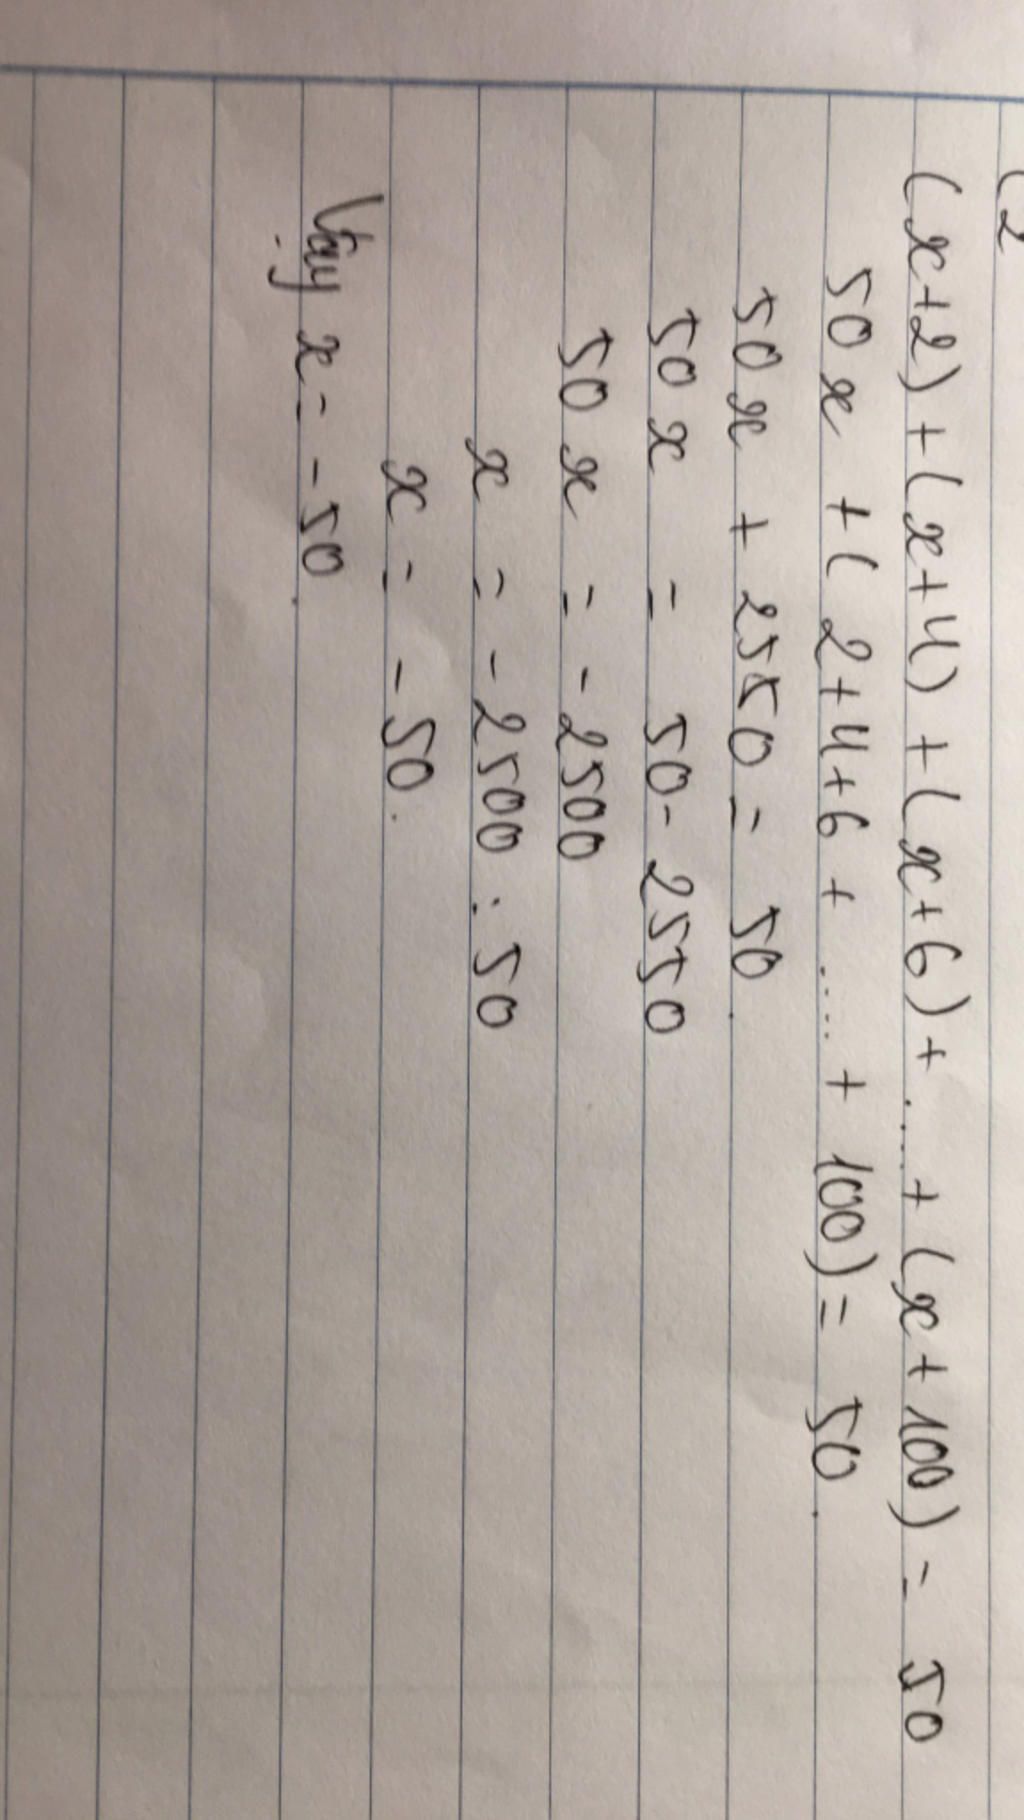 (x+2)+(x+4)+(x+6)+.....+(x+100)=50
50x+(2+4+6+.....+100)=50.
50x+2550=50.
50x=50-2550
50x=-2500
x=-2500:50
x=-50.
Vậy x=-50.